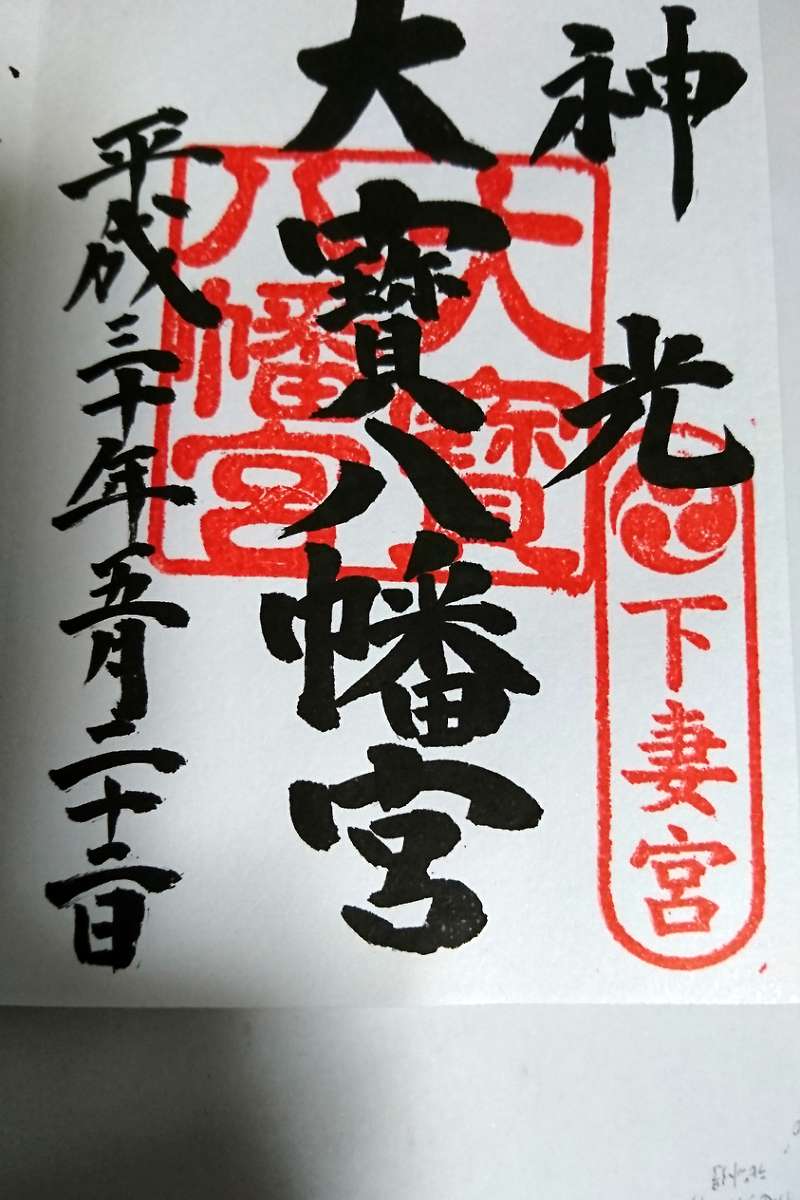 神光
下妻宮
大寳八幡宮
大寳
八幡宮
平成三十年五月二十二日